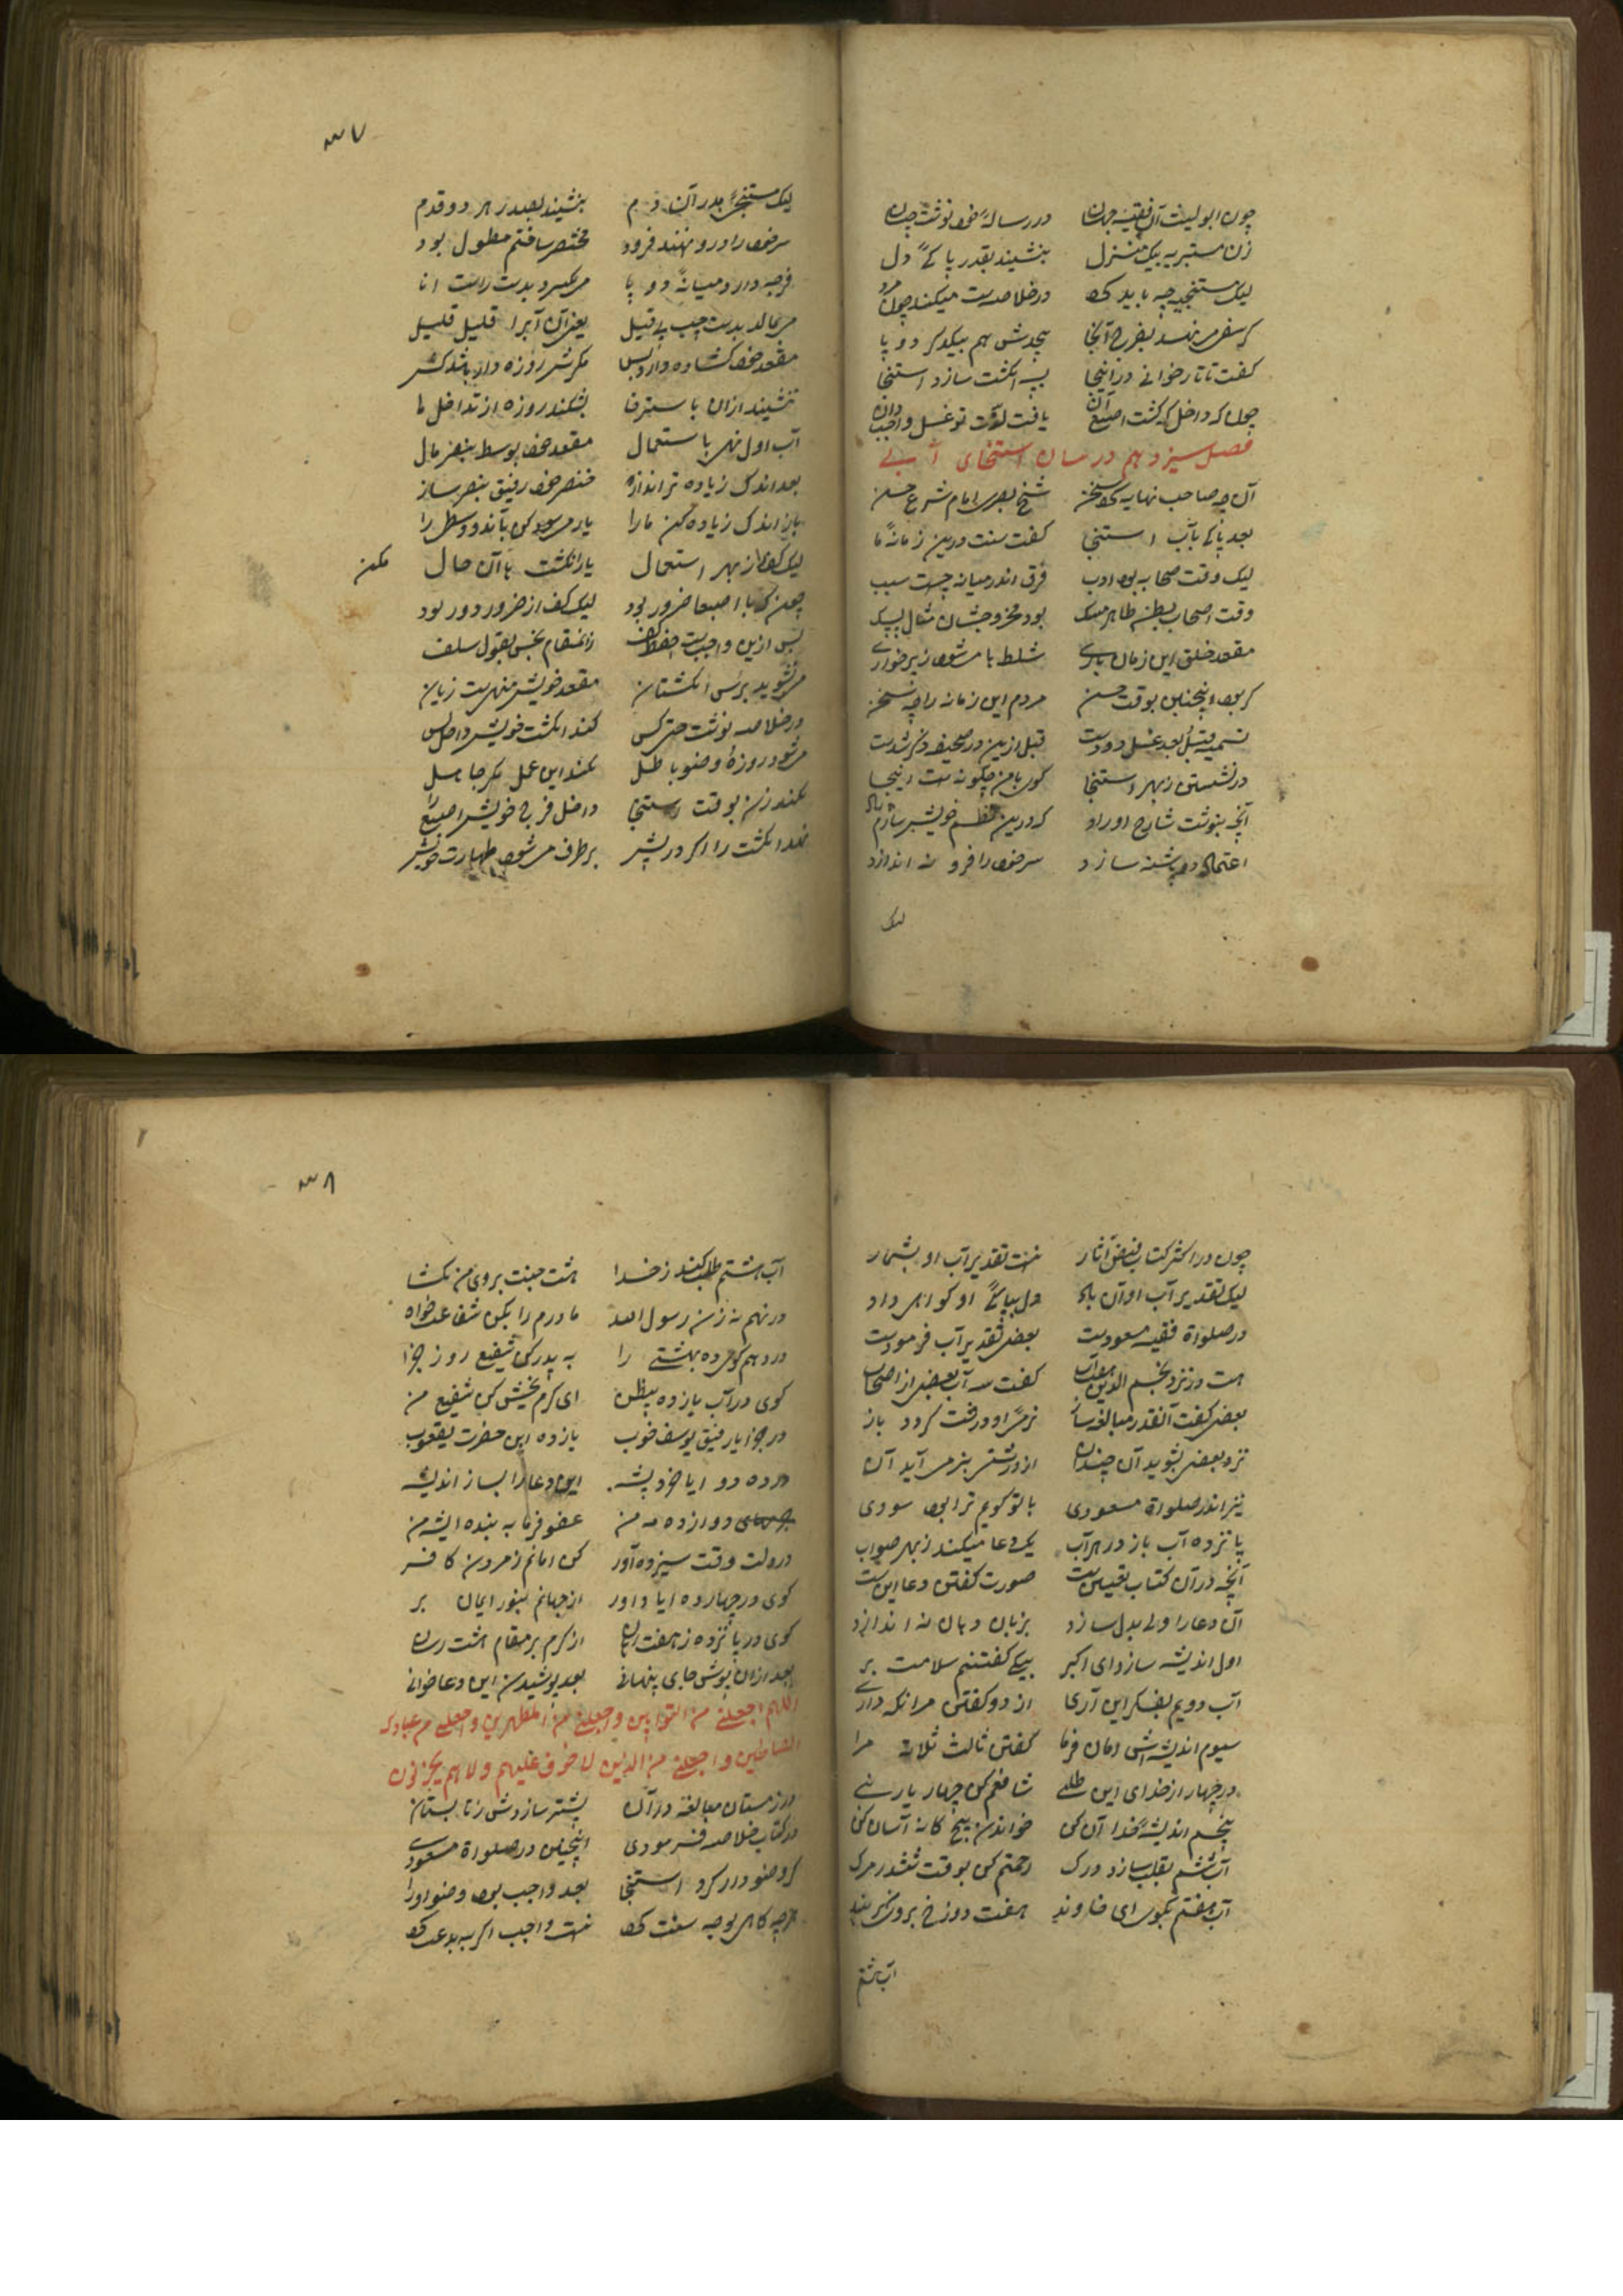 چون ابولیث آن فقیه جهان در رساله خود نوشت چنان
زن مستبریه بیک منزل بنشیند بقدر پاکی دل
لیک مستنجیه چه باید کرد در خلاصه است میکند چون مرد
کرسفی می نهد بفرج آنجا پیچدش هم بیکدگر دو پا
گفت تاتارخوانی در اینجا بسه انگشت سازد استنجا
چونکه داخل که گشت اصبع آن یافت لذت تو غسل واجب دان
فصل سیزدهم در بیان استنجای آبی
آن چه صاحب نهایه کرد سخن شیخ بصری امام شرع حسن
بعد پاکی بآب استنجا گفت سنت درین زمانه ما
لیک وقت صحابه بود ادب فرق اندر میانه چیست سبب
وقت اصحاب بطن طاهر مسک بود مخروجشان مثال پشک
مقعد خلق این زمان باری شلط با می شود ز پرخواری
گر بود اینچنین بوقت حسن مردم این زمانه را چه سخن
تسمیه قبل و بعد غسل دو دست قبل ازین در صحیفه ذکر شدست
در نشستن ز بهر استنجا گون بامن چگونه است اینجا
آنچه بنوشت شارح اوراد که درین نظم خویش سازم یاد
اعتماد دو پاشنه سازد سر خود را فرو نه اندازد
لیک
۳۷
لیک مستنجی بدر آن دم بنشیند بعد هر دو قدم
سر خود را درو نهند فرود مختصر ساختم مطول بود
فرجه دارد میانه دو پا می بگیرد بدست راست انا
می بمالد بدست چپ بی قیل یعنی آن آبرا قلیل قلیل
مقعد خود گشاده دارد بس مگرش روزه دار باشد کس
ننشیند ازان با سترخا بشکند روزه از تداخل ما
آب اول نهی باستعمال مقعد خود بوسط بنصر مال
بعد اندک زیاده تر اندازه خنصر خود رفیق بنصر ساز
باز اندک زیاده کن ما را یار مسعود کن بآندو وسطی را
لیک کف را ز بهر استعمال یار انگشت با آن حال مکن
چونکه با اصبعها ضرور بود لیک کف از ضرور دور بود
پس ازین واجبست حفظ کف زانمقام نجس بقول سلف
می نشوید برأس انگشتان مقعد خویش منهیست زیان
در خلاصه نوشت حتی کس کند انگشت خویش داخل پس
می شود روزه و وضو باطل نکند این عمل مگر جاهل
نکند زن بوقت استنجا داخل فرج خویش اصبع را
نهد انگشت را اگر در پیش برطرف می شود طهارت خویش
چون در اکثر کتاب فیض آثار نیست تقدیر آب او بشمار
لیک تقدیر آب او آن باد دل بپاکی او گواهی داد
در صلواة فقیه مسعودیست بعضی تقدیر آب فرمودست
هست در نزد نجم الدین هفت آب گفت سه آب بعضی از اصحاب
بعضی گفت آنقدر مبالغه ساز نرمی او درفت گردد باز
نزد بعضی بشوید آن چندان از درشتی بنرمی آید آن
نیز اندر صلواة مسعودی با تو گویم ترا بود سودی
پانزده آب باز در هر آب یک دعا میکند ز بهر صواب
آنچه در آن کتاب تعیین است صورت گفتن دعا این است
آن دعا را ولی بدل سازد بزبان و بیان نه اندازد
اول اندیشه سازد ای اکبر بیکی گفتنم سلامت بر
آب دویم بفکر این آری از دو گفتن مرا نگه داری
سیوم اندیشه اش امان فرما گفتن ثالث ثلاثه مرا
در چهار از خدای این طلبی شافعم کن چهار یار نبی
پنجم اندیشه خدا آن کن خواندن پنج گانه آسان کن
آب ششم بقلب سازد درک رحمتم کن بوقت ششدر مرگ
آب هفتم بگوید ای خداوند هفت دوزخ بروی من بر بند
آب هشتم
۳۸
آب هشتم طلب کند ز خدا هشت جنت بروی من بگشا
در نهم نه زن رسول الله مادرم را بکن شفاعت خواه
در دهم گو ده بهشتی را به پدر کن شفیع روز جزا
گوی در آب یازده بیظن ای کرم بخش کن شفیع من
در جزا یار رفیق یوسف خوب یازده ابن حضرت یعقوب
در ده دو ایا خرد پیشه این دعا را بساز اندیشه
دوازده مه من عفو فرما به بنده ایشه من
در دلت وقت سیزده آور کن امانم ز مردن کافر
گوی در چهارده ایا داور از جهانم بنور ایمان بر
گوی در پانزده ز هفت رهان از کرم بر مقام هشت رسان
بعد ازان پوش جای پنهانی بعد پوشیدن این دعا خوانی
اللهم اجعلنی من التوابین واجعلنی من المطهرین واجعلنی من عبادک
الصالحین واجعلنی من الذین لا خوف علیهم ولا هم یحزنون
در زمستان مبالغه در آن بیشتر سازدش ز تابستان
در کتاب خلاصه فرمودی اینچنین در صلواة مسعودی
گر وضو در کرد استنجا بعد واجب بود وضو او را
گرچه گاهی بوجه سنت کرد نیست واجب اگر به بدعت کرد